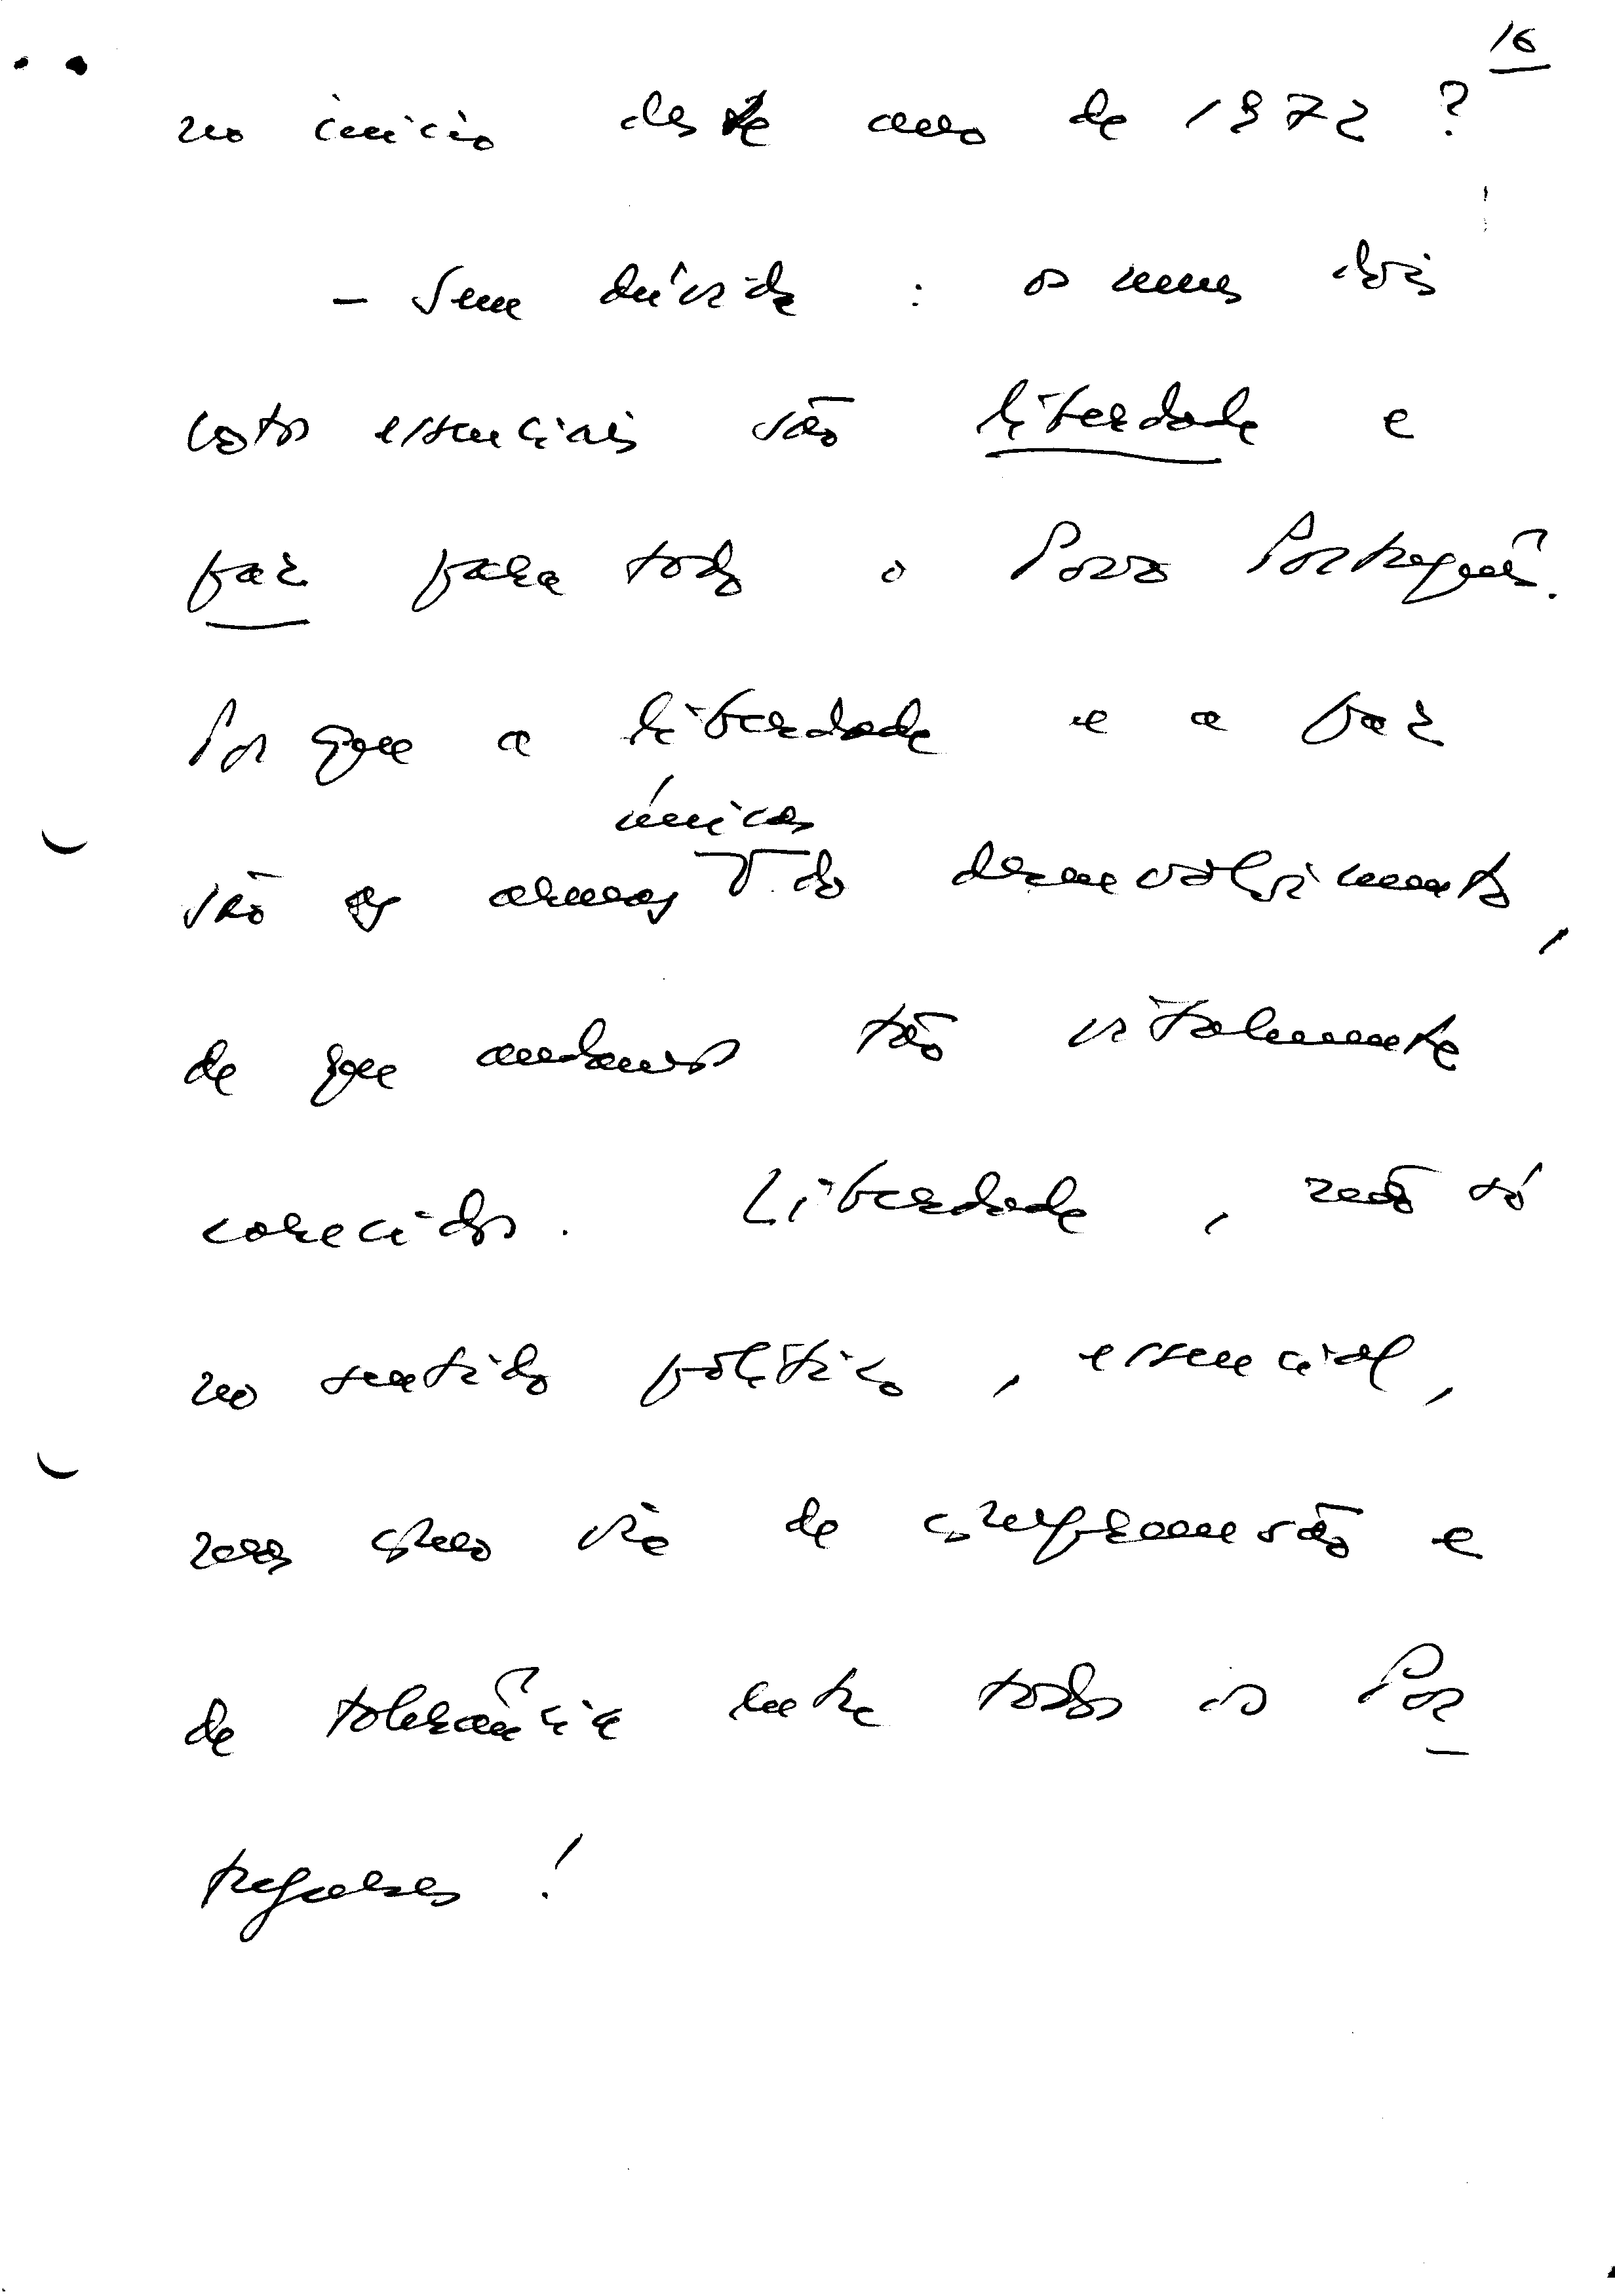 16
no início deste ano de 1972 ?
- Sem dúvida : os meus dois
votos essenciais são liberdade e
paz para todo o Povo Português.
Porque a liberdade e a paz
únicas
são as armas do desenvolvimento,
de que andamos tão vitalmente
carecidos. Liberdade, não só
no sentido político, essencial,
mas como via de compreensão e
de tolerância entre todos os Por-
tugueses !